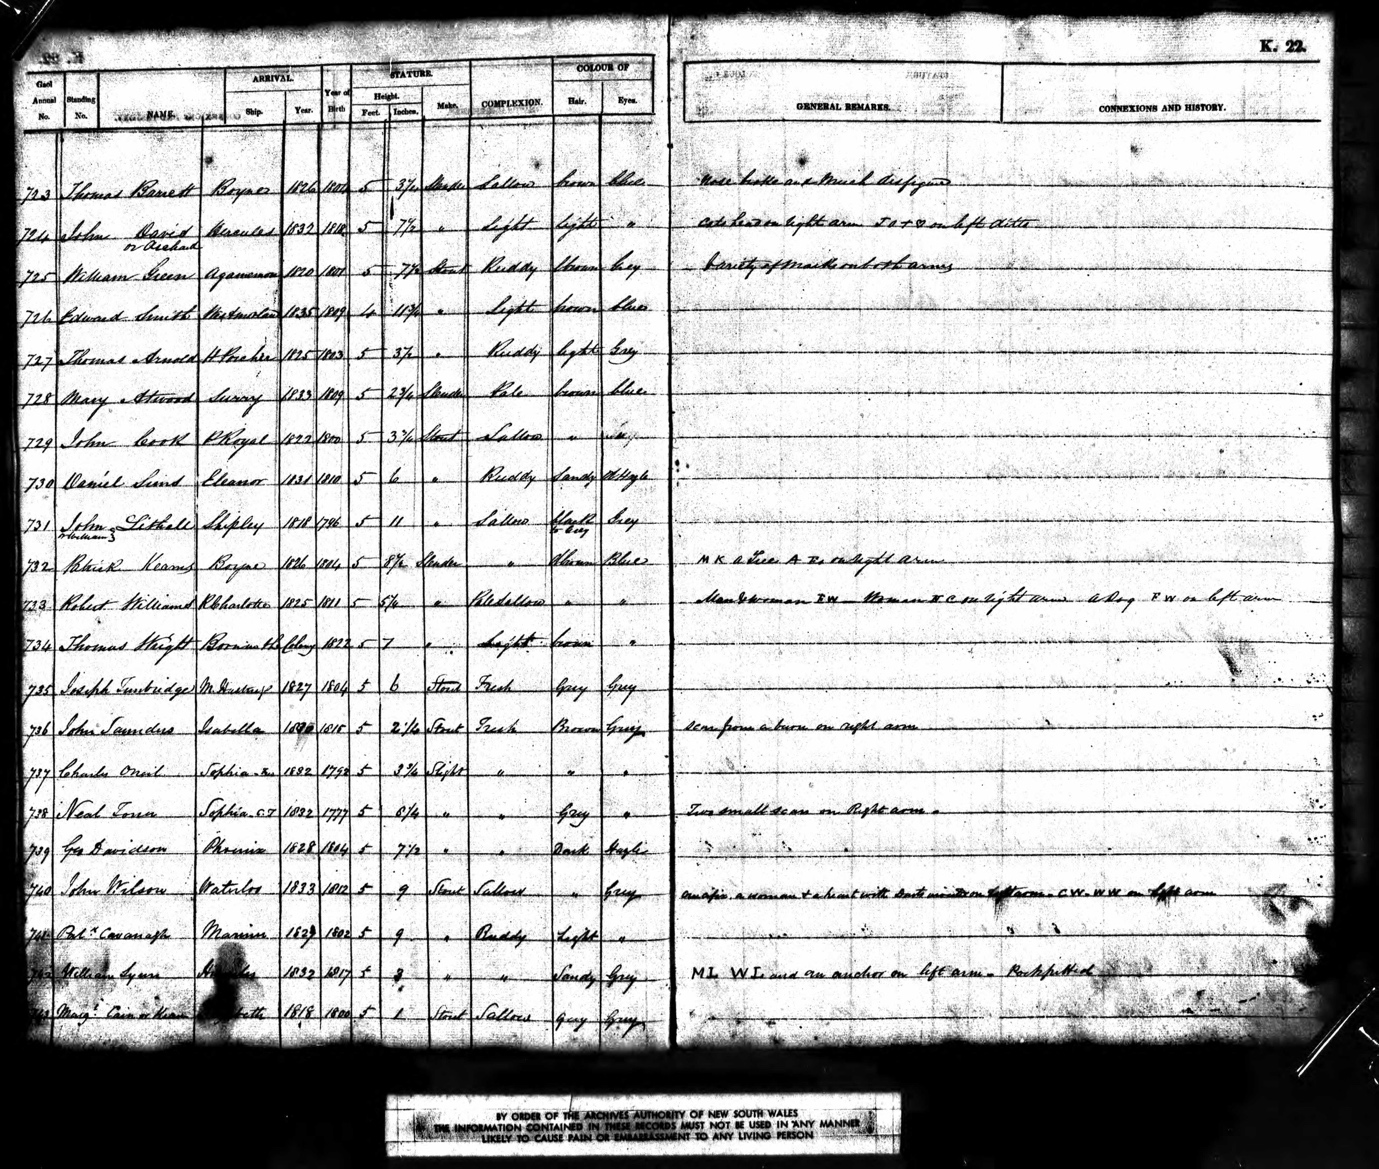 K. 22.
Gaol Annual No. Standing No. NAME. ARRIVAL. Ship. Year. Year of Birth STATURE. Height. Feet. Inches. Make. COMPLEXION. COLOUR OF Hair. Eyes. GENERAL REMARKS. CONNEXIONS AND HISTORY.
723 Thomas Barrett Boyne 1826 1804 5 3½ Slender Sallow brown blue Nose broke and much disfigured
724 John David Hercules 1832 5 7½ " Light light " on right arm on left ditto
or Orchard
725 William Green Agamemnon 1820 1801 5 7½ Stout Ruddy brown Grey Variety of marks on both arms
726 Edward Smith Westmorland 1835 1809 4 11¾ " Light brown blue
727 Thomas Arnold H Porcher 1825 1803 5 3½ " Ruddy light Grey
728 Mary Atwood Surry 1833 1809 5 2¾ Slender Pale brown blue
729 John Cook P Royal 1822 1800 5 Stout Sallow "
730 Daniel Sims Eleanor 1831 1810 5 6 " Ruddy Sandy
731 John Lithall Shipley 1818 1796 5 11 " Sallow black Grey
or William to Grey
732 Patrick Kearns Boyne 1826 1804 5 8½ Slender " Blue M K a Tree on right arm
733 Robert Williams R Charlotte 1825 1811 5 5¼ " Pale Sallow " " Man & woman woman on right arm a Dog F W on left arm
734 Thomas Wright Born in the Colony 1822 5 7 " brown "
735 Joseph Tunbridge M Hastings 1827 1804 5 6 Stout Fresh Grey Grey
736 John Saunders Isabella 1815 5 2¼ Stout Fresh Brown Grey scar from a burn on right arm
737 Charles Oneil Sophia 1832 1792 5 3¾ Slight " " "
738 Neal Toner Sophia 1832 1777 5 6¼ " " Grey " Two small scars on Right arm
739 Geo Davidson Phoenix 1828 1804 5 7½ " " Dark Hazle
740 John Wilson Waterloo 1833 1812 5 9 Stout Sallow " Grey a woman + a heart with Darts on arm C W. W W on left arm
Patk Cavanagh Mariner 1802 5 9 " Ruddy Light "
William Lynn 1832 1817 5 3 " " Sandy Grey M L W L and an anchor on left arm Pockpitted
Margt Cain or 1818 1800 5 1 Stout Sallow Grey Grey
BY ORDER OF THE ARCHIVES AUTHORITY OF NEW SOUTH WALES
THE INFORMATION CONTAINED IN THESE RECORDS MUST NOT BE USED IN ANY MANNER
LIKELY TO CAUSE PAIN OR EMBARRASSMENT TO ANY LIVING PERSON